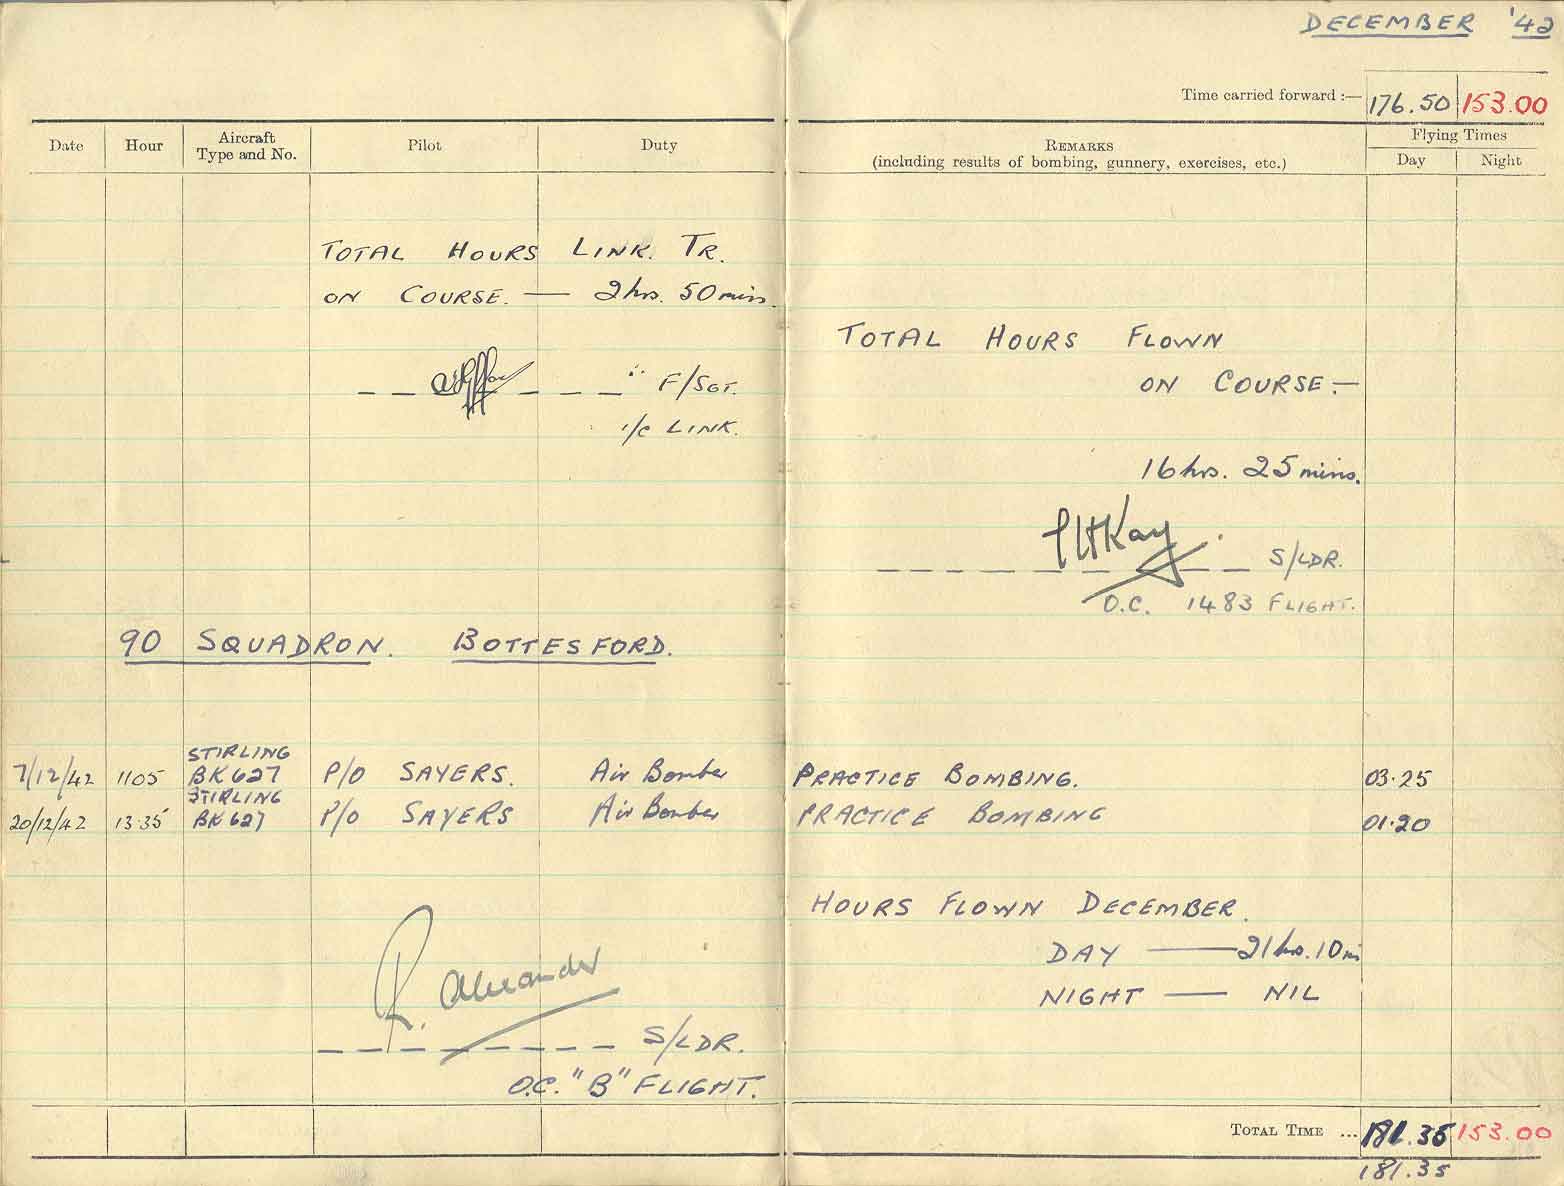 DECEMBER '42
Time carried forward :— 176.50 153.00
Date Hour Aircraft Type and No. Pilot Duty REMARKS (including results of bombing, gunnery, exercises, etc.) Flying Times Day Night
TOTAL HOURS LINK. TR.
ON COURSE. — 2hrs. 50mins.
F/SGT.
I/C LINK.
TOTAL HOURS FLOWN
ON COURSE:—
16hrs. 25mins.
Kay S/LDR.
O.C. 1483 FLIGHT.
90 SQUADRON. BOTTESFORD.
7/12/42 1105 STIRLING BK627 P/O SAYERS. Air Bomber PRACTICE BOMBING. 03.25
20/12/42 13.35 STIRLING BK627 P/O SAYERS Air Bomber PRACTICE BOMBING 01.20
HOURS FLOWN DECEMBER.
DAY — 21hrs. 10m
NIGHT — NIL
R. Alexander
S/LDR.
O.C. "B" FLIGHT.
TOTAL TIME ... 181.35 153.00
181.35